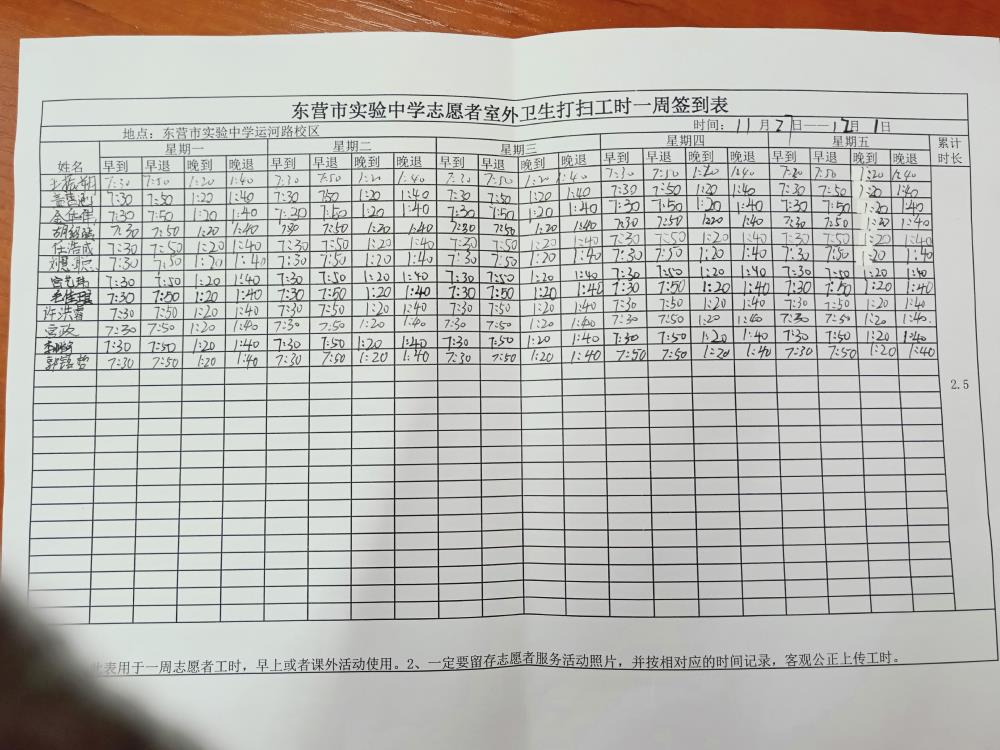 东营市实验中学志愿者室外卫生打扫工时一周签到表
地点：东营市实验中学运河路校区 时间：11月27日——12月1日
姓名 星期一 星期二 星期三 星期四 星期五 累计时长
早到 早退 晚到 晚退 早到 早退 晚到 晚退 早到 早退 晚到 晚退 早到 早退 晚到 晚退 早到 早退 晚到 晚退
7:30 7:50 1:20 1:40 7:30 7:50 1:20 1:40 7:30 7:50 1:20 1:40 7:30 7:50 1:20 1:40 7:30 7:50 1:20 1:40
7:30 7:50 1:20 1:40 7:30 7:50 1:20 1:40 7:30 7:50 1:20 1:40 7:30 7:50 1:20 1:40 7:30 7:50 1:20 1:40
7:30 7:50 1:20 1:40 7:30 7:50 1:20 1:40 7:30 7:50 1:20 1:40 7:30 7:50 1:20 1:40 7:30 7:50 1:20 1:40
7:30 7:50 1:20 1:40 7:30 7:50 1:20 1:40 7:30 7:50 1:20 1:40 7:30 7:50 1:20 1:40 7:30 7:50 1:20 1:40
任浩成 7:30 7:50 1:20 1:40 7:30 7:50 1:20 1:40 7:30 7:50 1:20 1:40 7:30 7:50 1:20 1:40 7:30 7:50 1:20 1:40
7:30 7:50 1:20 1:40 7:30 7:50 1:20 1:40 7:30 7:50 1:20 1:40 7:30 7:50 1:20 1:40 7:30 7:50 1:20 1:40
7:30 7:50 1:20 1:40 7:30 7:50 1:20 1:40 7:30 7:50 1:20 1:40 7:30 7:50 1:20 1:40 7:30 7:50 1:20 1:40
毛佳琪 7:30 7:50 1:20 1:40 7:30 7:50 1:20 1:40 7:30 7:50 1:20 1:40 7:30 7:50 1:20 1:40 7:30 7:50 1:20 1:40
许洪睿 7:30 7:50 1:20 1:40 7:30 7:50 1:20 1:40 7:30 7:50 1:20 1:40 7:30 7:50 1:20 1:40 7:30 7:50 1:20 1:40
宫政 7:30 7:50 1:20 1:40 7:30 7:50 1:20 1:40 7:30 7:50 1:20 1:40 7:30 7:50 1:20 1:40 7:30 7:50 1:20 1:40
7:30 7:50 1:20 1:40 7:30 7:50 1:20 1:40 7:30 7:50 1:20 1:40 7:30 7:50 1:20 1:40 7:30 7:50 1:20 1:40
7:30 7:50 1:20 1:40 7:30 7:50 1:20 1:40 7:30 7:50 1:20 1:40 7:50 7:50 1:20 1:40 7:30 7:50 1:20 1:40
2.5
此表用于一周志愿者工时，早上或者课外活动使用。2、一定要留存志愿者服务活动照片，并按相对应的时间记录，客观公正上传工时。